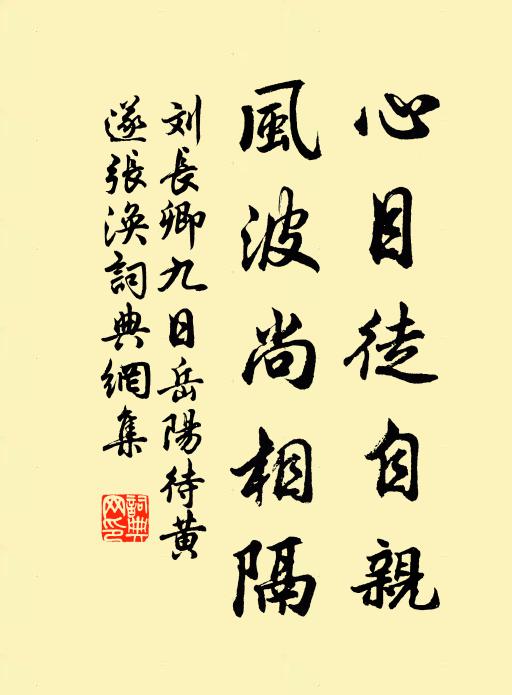 心目徒自親
風波尚相隔
刘長卿九日岳陽待黄
遂張渙詞典網集
詞典
網印